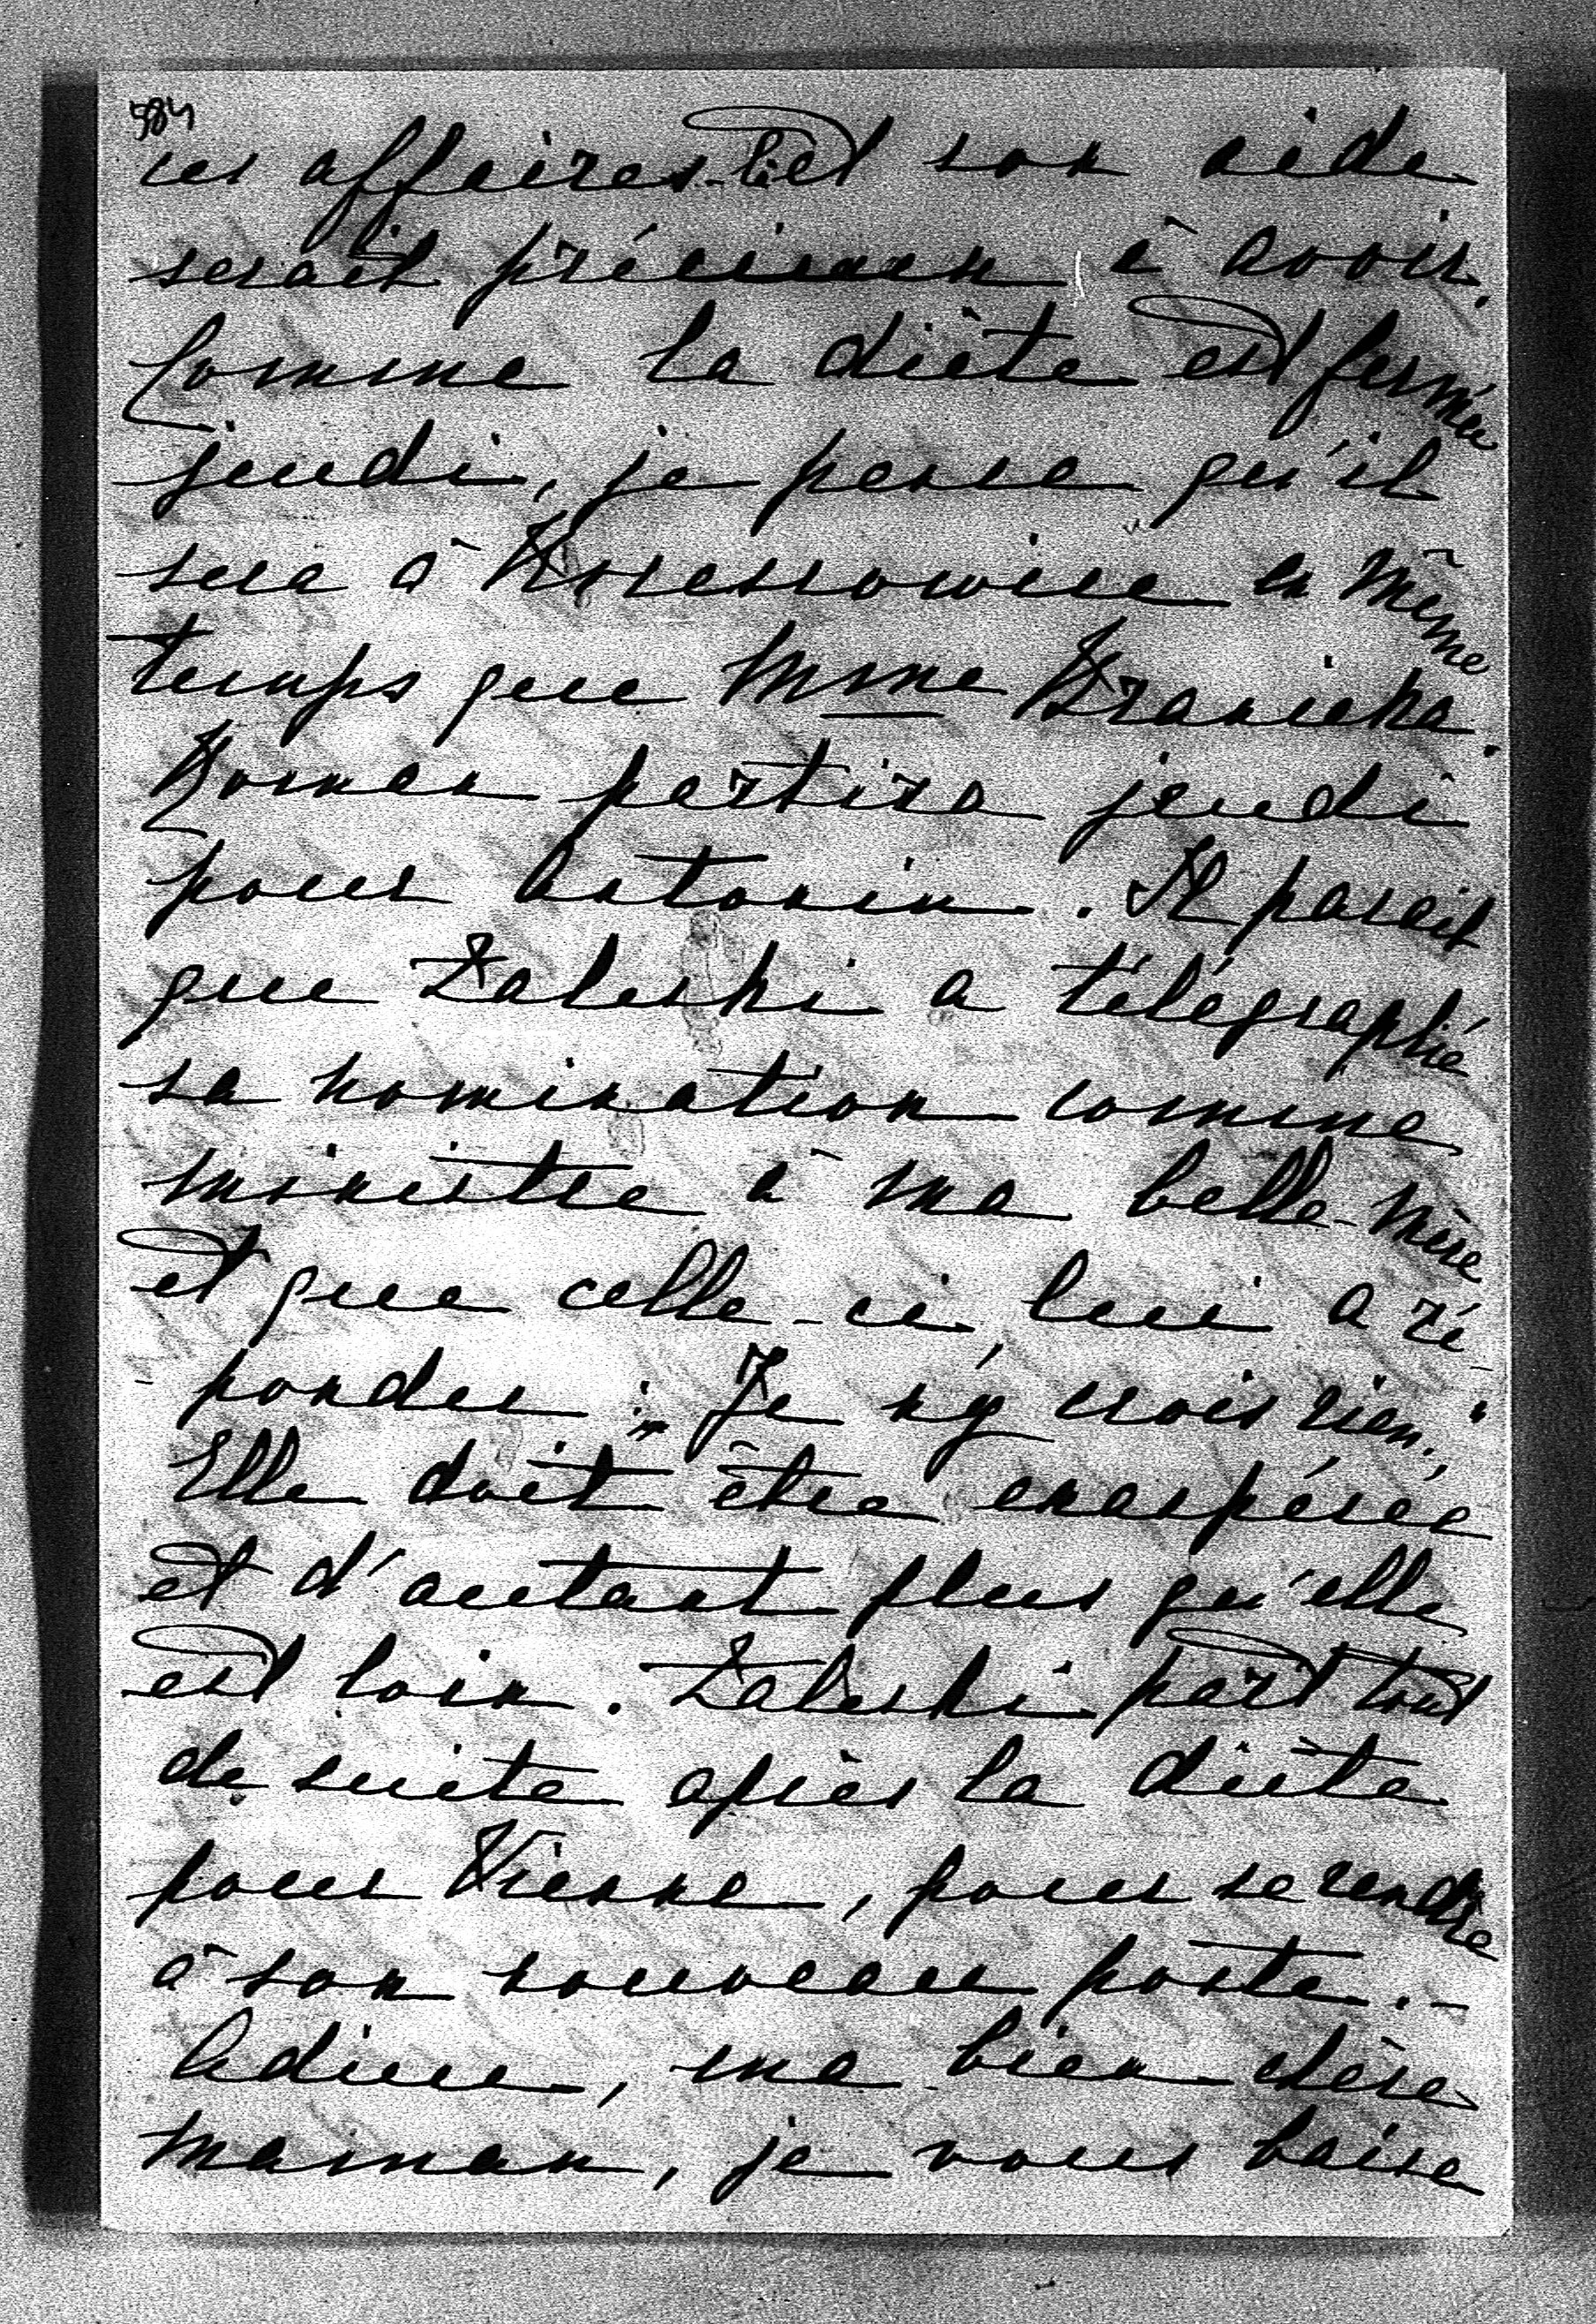 584
ces affaires-là et son aide
serait précieuse à avoir.
Comme la diète est fermée
jeudi, je pense qu'il
sera à Kressowice en même
temps que Mme Krasicka.
Roman partira jeudi
pour Antonin. Il parait
que Zaleski a télégraphié
sa nomination comme
ministre à ma belle-mère
et que celle-ci lui a ré-
pondu : "Je n'y crois rien."
Elle doit être exaspérée
et d'autant plus qu'elle
est loin. Zaleski part tout
de suite après la diète
pour Vienne, pour se rendre
à son nouveau poste. -
Adieu, ma bien chère
maman, je vous baise